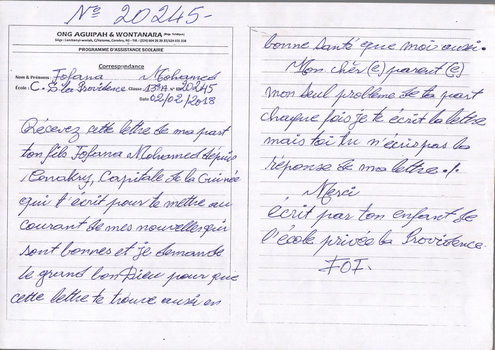 N° 20245-
ONG AGUIPAH & WONTANARA
PROGRAMME D'ASSISTANCE SCOLAIRE
Correspondance
Nom & Prénoms Fofana Mohamed
Ecole: C.S la Providence Classe 13èA N° 20245
Date 02/02/2018
Récevez cette lettre de ma part
ton fils Fofana Mohamed dépuis
Conakry, Capitale de la Guinée
qui t'écrit pour te mettre au
courant de mes nouvelles qui
sont bonnes et je demande
le grand bon Dieu pour que
cette lettre te trouve aussi en
bonne santé que moi aussi.
Mon chèr(e) parent(e)
mon seul problème de ta part
chaque fois je te écrit la lettre
mais toi tu n'écris pas la
réponse de ma lettre ./.
Merci
écrit par ton enfant de
l'école privée la Providence.
FOF.